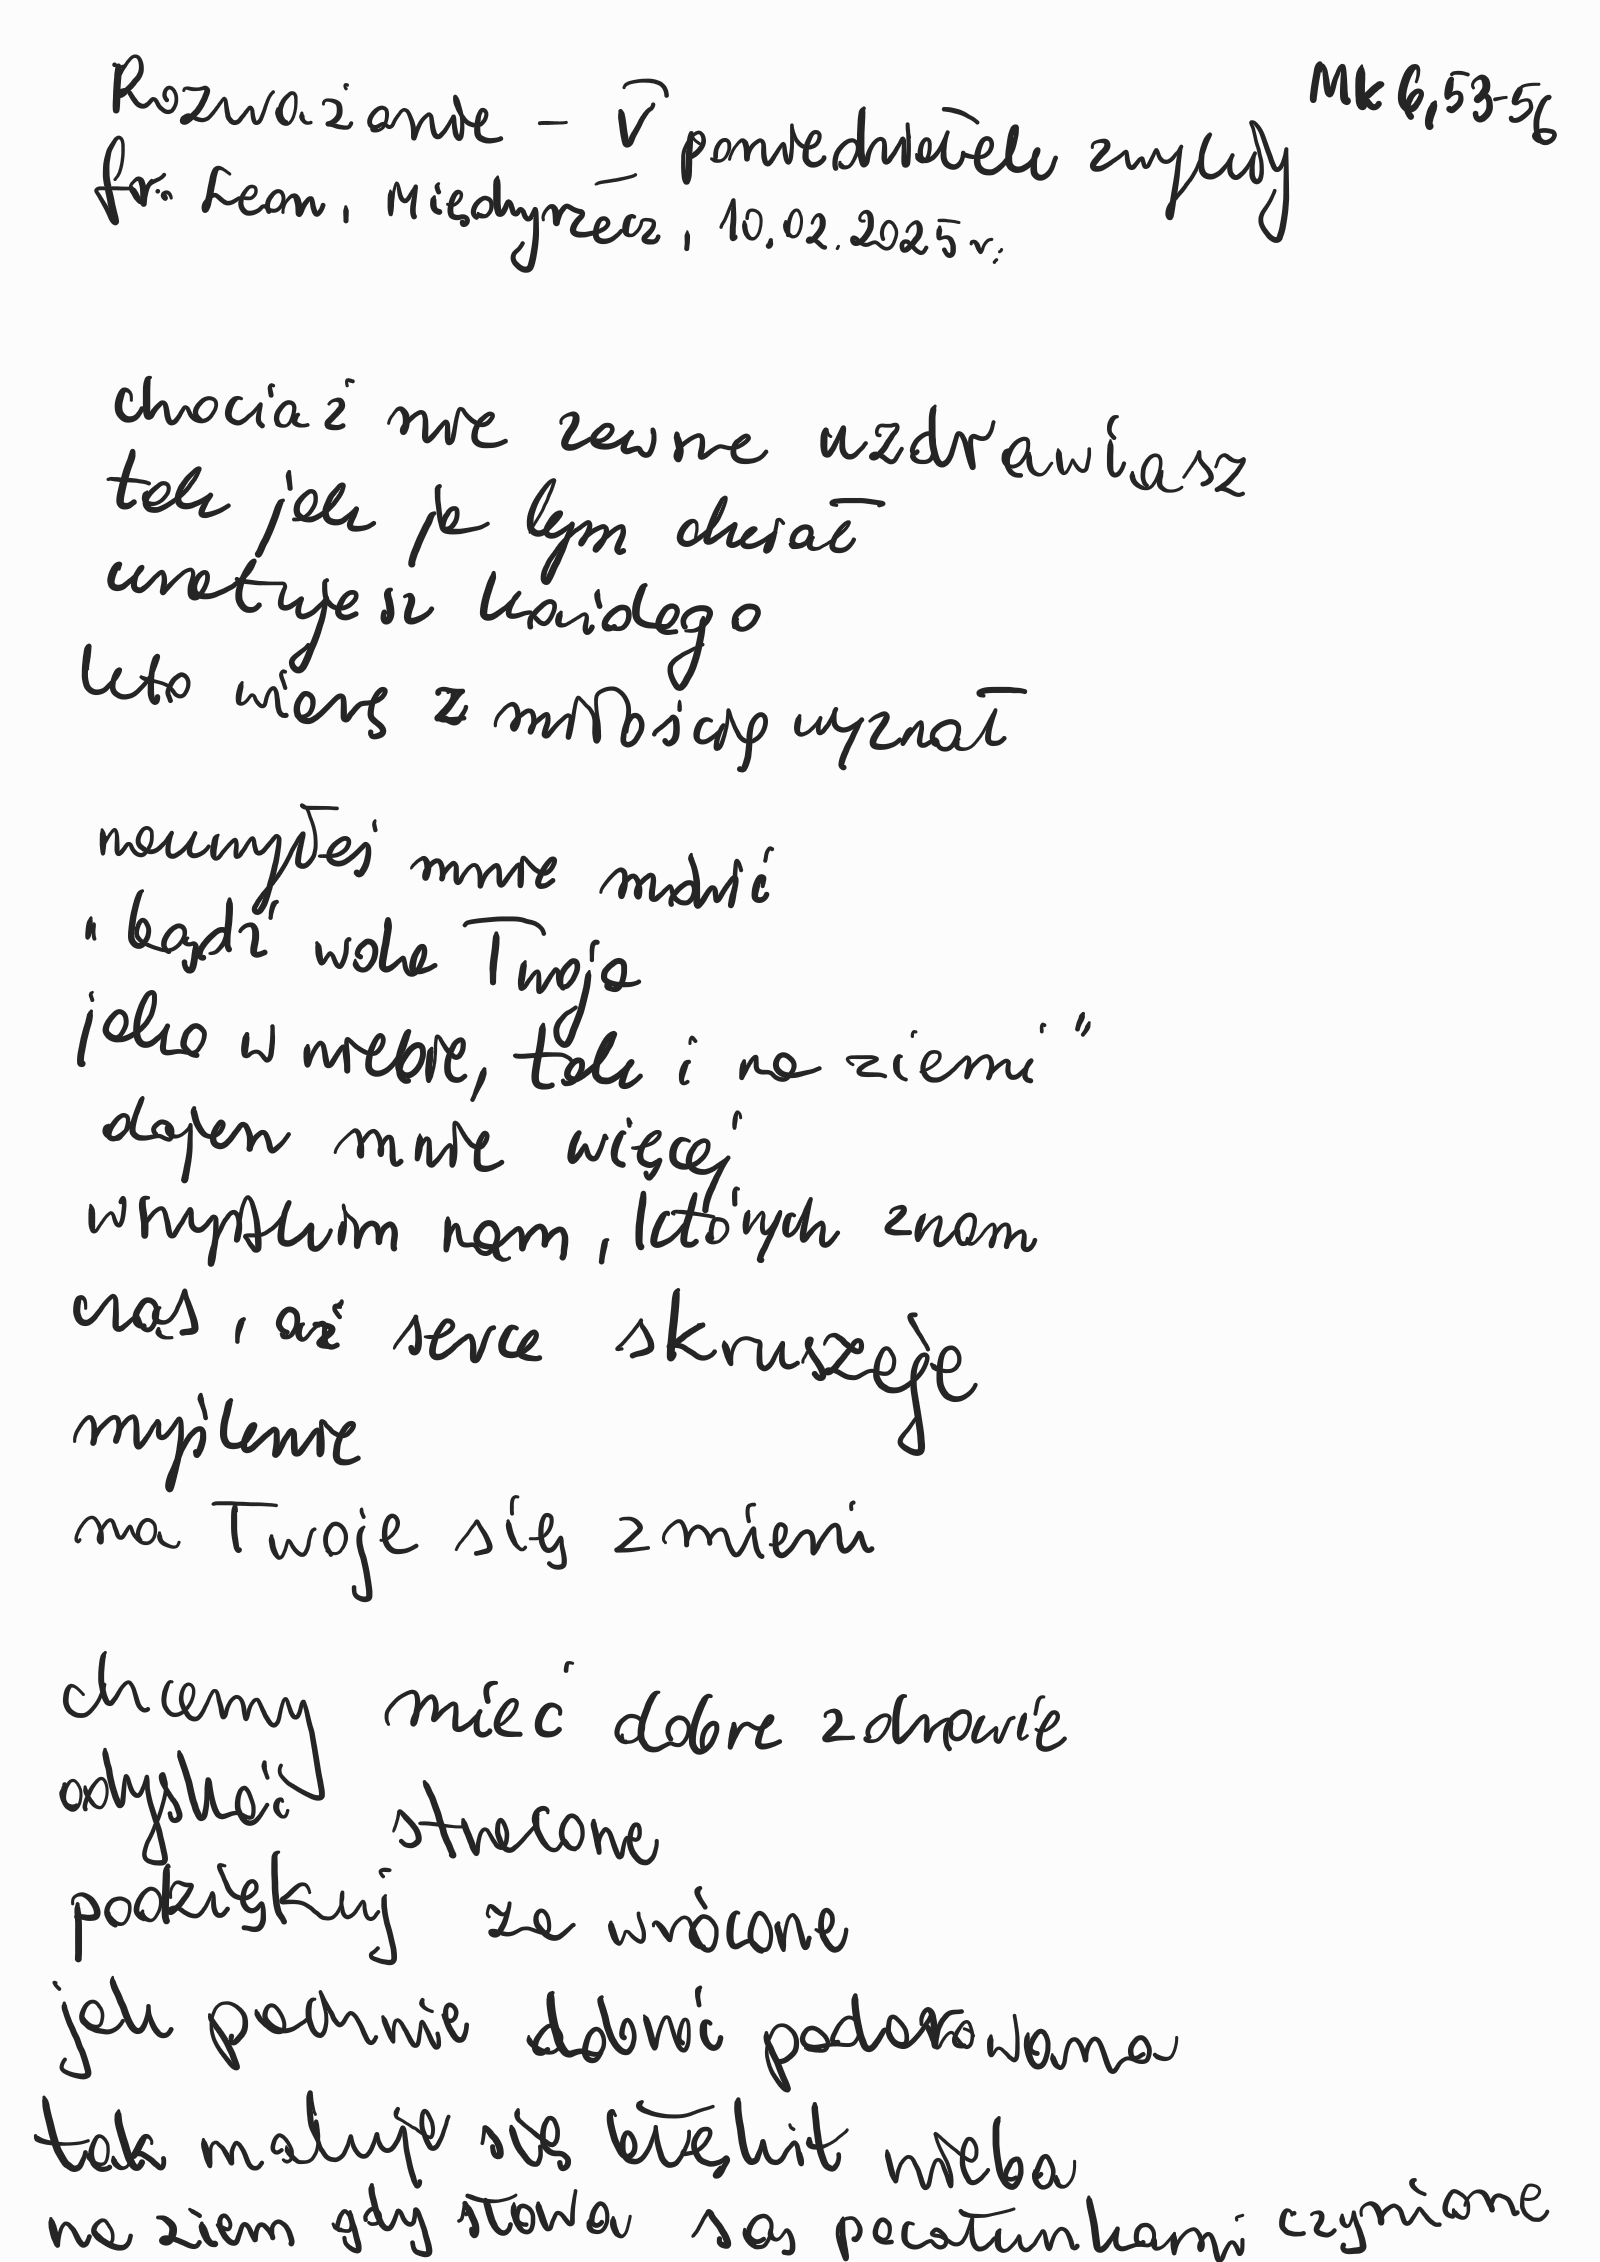 Mk 6,53-56
Rozważanie - V poniedziałek zwykły
fr. Leon, Międzyrzecz, 10.02.2025 r.
chociaż nie zawsze uzdrawiasz
tak jak ja bym chciał
uratujesz każdego
kto wiarę z miłością wyznał
nauczyłeś mnie mówić
"bądź wola Twoja
jako w niebie, tak i na ziemi"
dajesz mnie więcej
wszystkim nam, których znam
czas, aż serce skruszeje
myślenie
na Twoje się zmieni
chcemy mieć dobre zdrowie
odzyskać stracone
podziękuj za wrócone
jak pięknie dobroć podarowana
tak maluje się błękit nieba
na ziemi gdy słowa są pocałunkami czynione